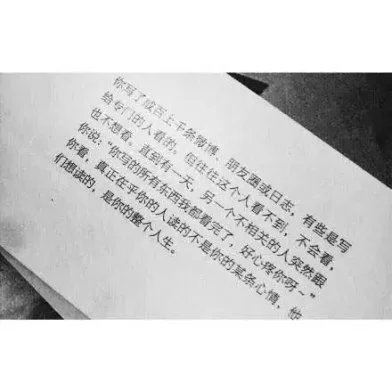 你写了成百上千条微博、朋友圈或日志，有些是写
给专门的人看的，但往往这个人看不到，不会看，
也不想看。直到有一天，另一个不相关的人突然跟
你说：“你写的所有东西我都看完了，好心疼你呀~”
你看，真正在乎你的人读的不是你的某条心情，他
们想读的，是你的整个人生。